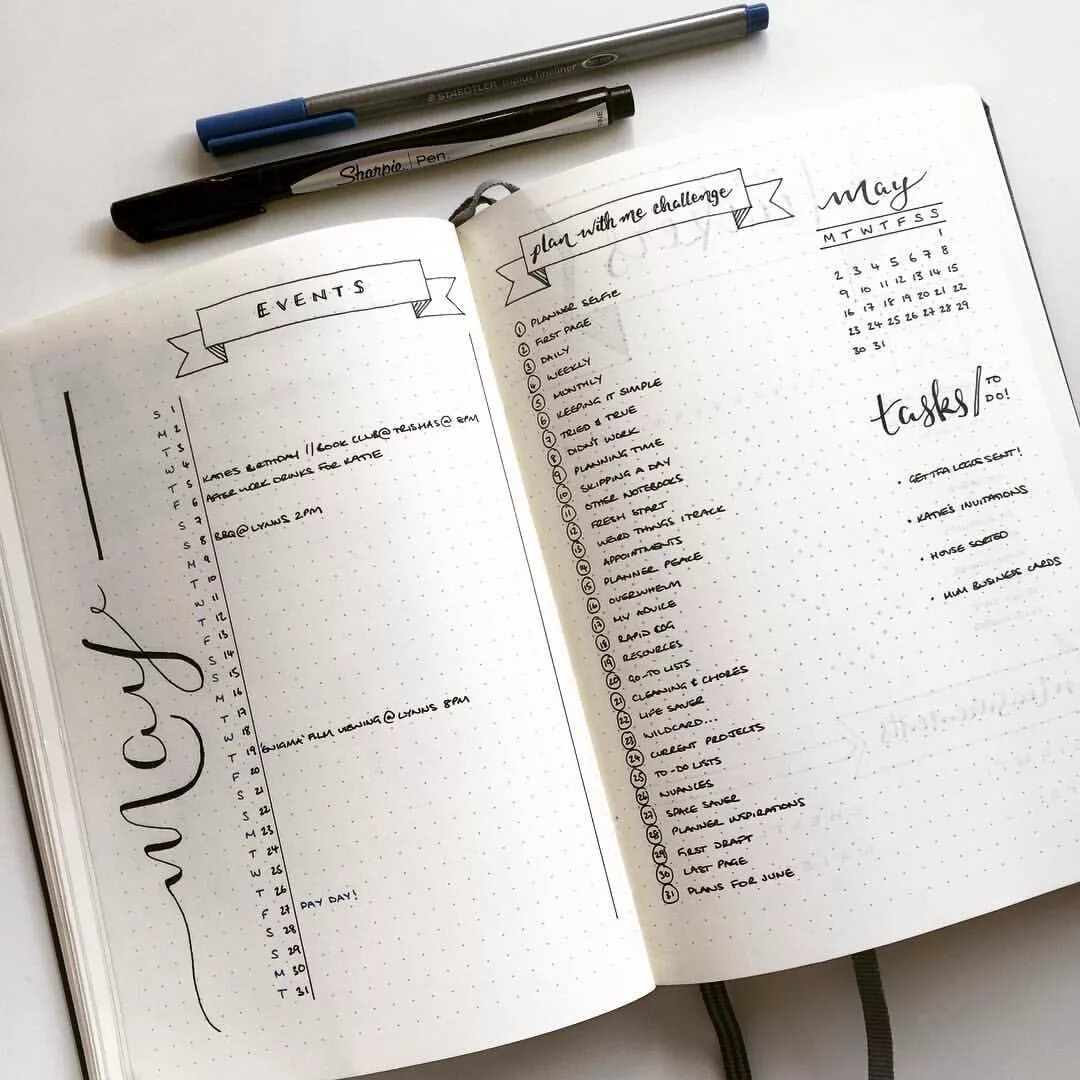 STAEDTLER triplus fineliner
Sharpie Pen FINE
EVENTS
May
S 1
M 2
T 3
W 4 KATIES BIRTHDAY // BOOK CLUB @ TRISHAS @ 8PM
T 5 AFTER WORK DRINKS FOR KATIE
F 6
S 7 BBQ @ LYNNS 2PM
S 8
M 9
T 10
W 11
T 12
F 13
S 14
S 15
M 16
T 17
W 18
T 19 'ENIGMA' FILM VIEWING @ LYNNS 8PM
F 20
S 21
S 22
M 23
T 24
W 25
T 26
F 27 PAY DAY!
S 28
S 29
M 30
T 31
plan with me challenge
1 PLANNER SELFIE
2 FIRST PAGE
3 DAILY
4 WEEKLY
5 MONTHLY
6 KEEPING IT SIMPLE
7 TRIED & TRUE
8 DIDN'T WORK
9 PLANNING TIME
10 SKIPPING A DAY
11 OTHER NOTEBOOKS
12 FRESH START
13 WEIRD THINGS I TRACK
14 APPOINTMENTS
15 PLANNER PEACE
16 OVERWHELM
17 MY ADVICE
18 RAPID LOG
19 RESOURCES
20 GO-TO LISTS
21 CLEANING & CHORES
22 LIFE SAVER
23 WILDCARD...
24 CURRENT PROJECTS
25 TO-DO LISTS
26 NUANCES
27 SPACE SAVER
28 PLANNER INSPIRATIONS
29 FIRST DRAFT
30 LAST PAGE
31 PLANS FOR JUNE
May
M T W T F S S
1
2 3 4 5 6 7 8
9 10 11 12 13 14 15
16 17 18 19 20 21 22
23 24 25 26 27 28 29
30 31
tasks/TO DO!
• GET TFA LOGOS SENT!
• KATIE'S INVITATIONS
• HOUSE SORTED
• MUM BUSINESS CARDS